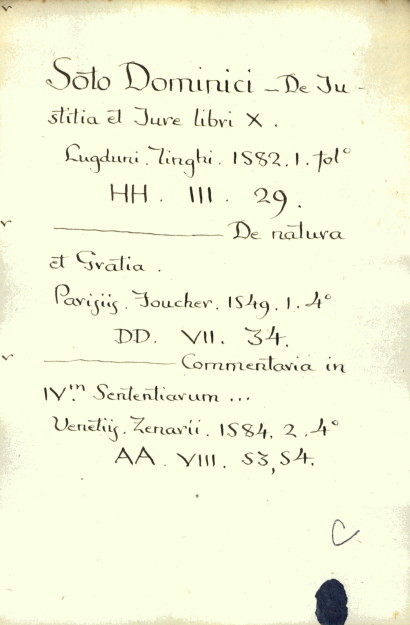 Soto Dominici - De Ju-
stitia et Jure libri X.
Lugduni. Tinghi. 1582. 1. fol°
HH. III. 29.
——— De natura
et Gratia.
Parisiis. Foucher. 1549. 1. 4°
DD. VII. 34.
——— Commentaria in
IV.m Sententiarum ...
Venetiis. Zenarii. 1584. 2. 4°
AA. VIII. 53, 54.
C